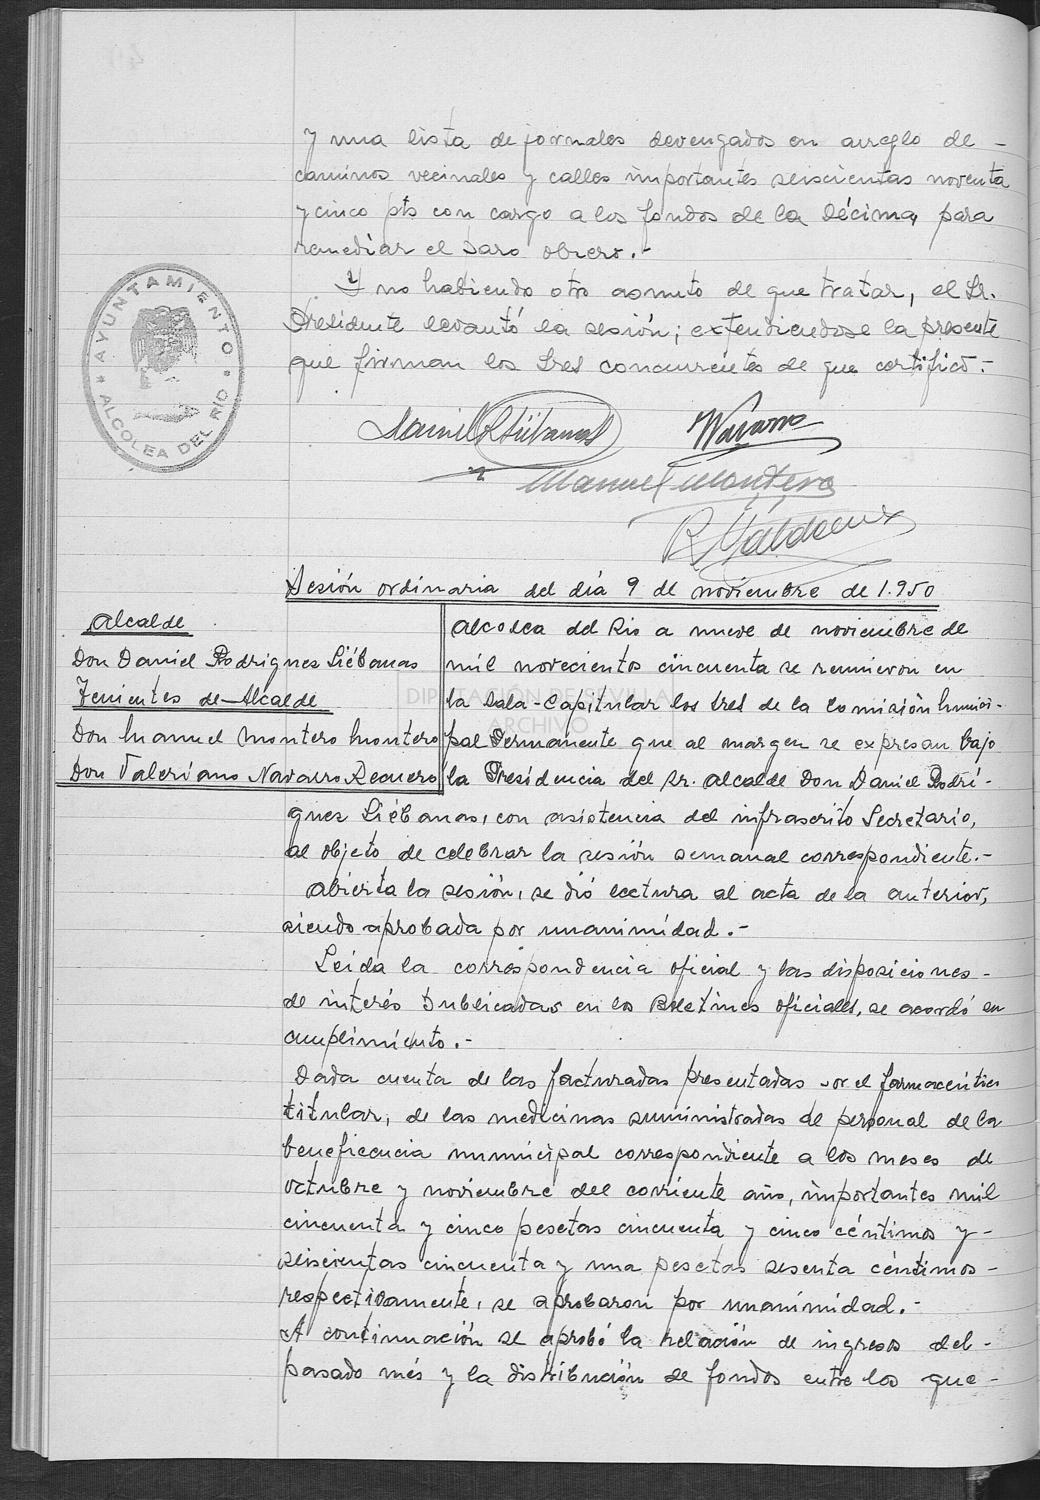 y una lista de jornales devengados en arreglo de -
caminos vecinales y calles importantes seiscientas noventa
y cinco pts con cargo a los fondos de la Décima, para
remediar el paro obrero.-
Y no habiendo otro asunto de que tratar, el Sr.
Presidente levantó la sesión; extendiendose la presente
que firman los Sres concurrentes de que certifico.-
AYUNTAMIENTO
ALCOLEA DEL RIO
Daniel R Liébanas
Navarro
Manuel Montero
Sesión ordinaria del día 9 de noviembre de 1.950
Alcalde
Don Daniel Rodriguez Liébanas
Tenientes de-Alcalde
Don Manuel Montero Montero
Don Valeriano Navarro Requero
Alcolea del Rio a nueve de noviembre de
mil novecientos cincuenta se reunieron en
la Sala-Capitular los Sres de la Comisión Munici-
pal Permanente que al margen se expresan bajo
la Presidencia del Sr. Alcalde Don Daniel Rodrí-
guez Liébanas, con asistencia del infrascrito Secretario,
al objeto de celebrar la sesión semanal correspondiente.-
Abierta la sesión, se dió lectura al acta de la anterior,
siendo aprobada por unanimidad.-
Leida la correspondencia oficial y las disposiciones -
de interés publicadas en los Boletines oficiales, se acordó su
cumplimiento.-
Dada cuenta de las facturadas presentadas por el farmacéutico
titular, de las medicinas suministradas al personal de la
beneficencia municipal correspondiente a los meses de
octubre y noviembre del corriente año, importantes mil
cincuenta y cinco pesetas cincuenta y cinco céntimos y -
seiscientas cincuenta y una pesetas sesenta céntimos -
respectivamente, se aprobaron por unanimidad.-
A continuación se aprobó la relación de ingresos del -
pasado més y la distribución de fondos entre los que -
DIPUTACIÓN DE SEVILLA
ARCHIVO